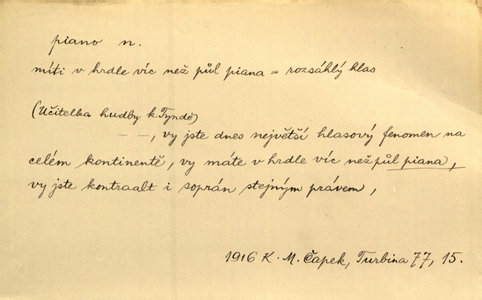 piano n.
míti v hrdle víc než půl piana = rozsáhlý hlas
(Učitelka hudby k Tyndě)
— —, vy jste dnes největší hlasový fenomen na
celém kontinentě, vy máte v hrdle víc než půl piana,
vy jste kontraalt i soprán stejným právem,
1916 K. M. Čapek, Turbina 77, 15.